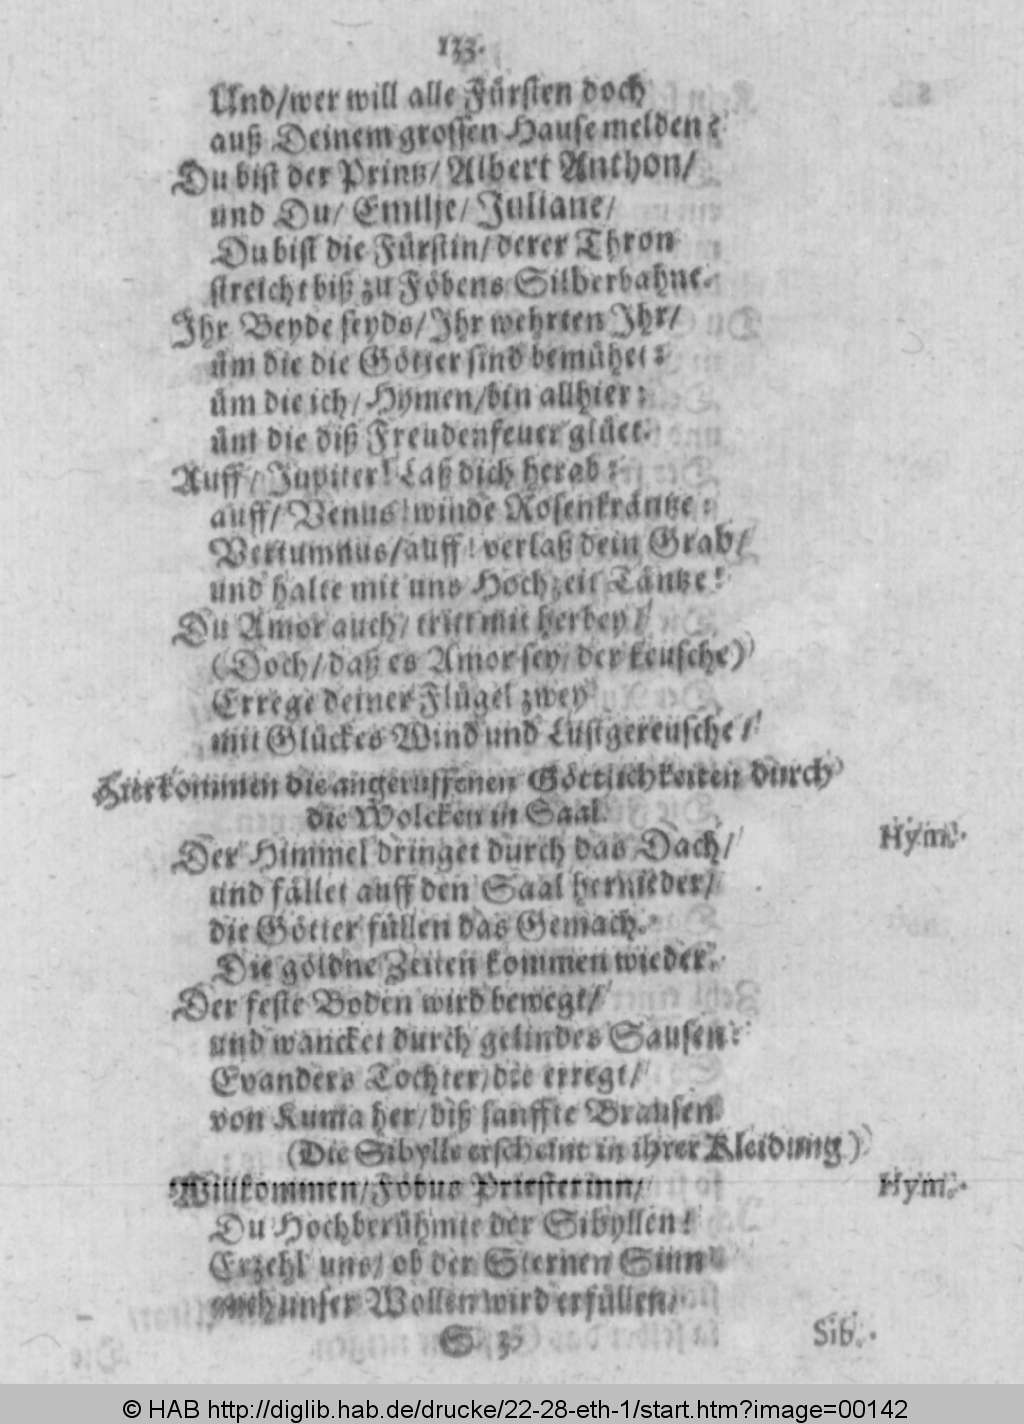 133.
Und/wer will alle Fürsten doch
auß Deinem grossen Hause melden?
Du bist der Printz/ Albert Anthon/
und Du/ Emilje/ Juliane/
Du bist die Fürstin/ derer Thron
streicht biß zu Föbens Silberbahne.
Ihr Beyde seyds/ Ihr wehrten Ihr/
üm die die Götter sind bemühet:
üm die ich/ Hymen/ bin allhier:
üm die diß Freudenfeuer glüet.
Auff/ Jupiter! Laß dich herab:
auff/ Venus! winde Rosenkräntze:
Vertumnus/ auff! verlaß dein Grab/
und halte mit uns Hochzeit Täntze!
Du Amor auch/ tritt mit herbey/
(Doch/ daß es Amor sey/ der keusche)
Errege deiner Flügel zwey
mit Glückes Wind und Lustgereusche/
Hier kommen die angeruffenen Göttlichkeiten durch
die Wolcken in Saal.
Der Himmel dringet durch das Dach/ Hym.
und fället auff den Saal hernieder/
die Götter füllen das Gemach.
Die göldne Zeiten kommen wieder.
Der feste Boden wird bewegt/
und wancket durch gelindes Sausen:
Evanders Tochter/ die erregt/
von Kuma her/ diß sanffte Brausen
(Die Sibylle erscheint in ihrer Kleidung)
Willkommen/ Föbus Priesterinn/ Hym.
Du Hochberühmte der Sibyllen!
Erzehl uns/ ob der Sternen Sinn
auch unser Wollen wird erfüllen/
S 3 Sib.
© HAB http://diglib.hab.de/drucke/22-28-eth-1/start.htm?image=00142